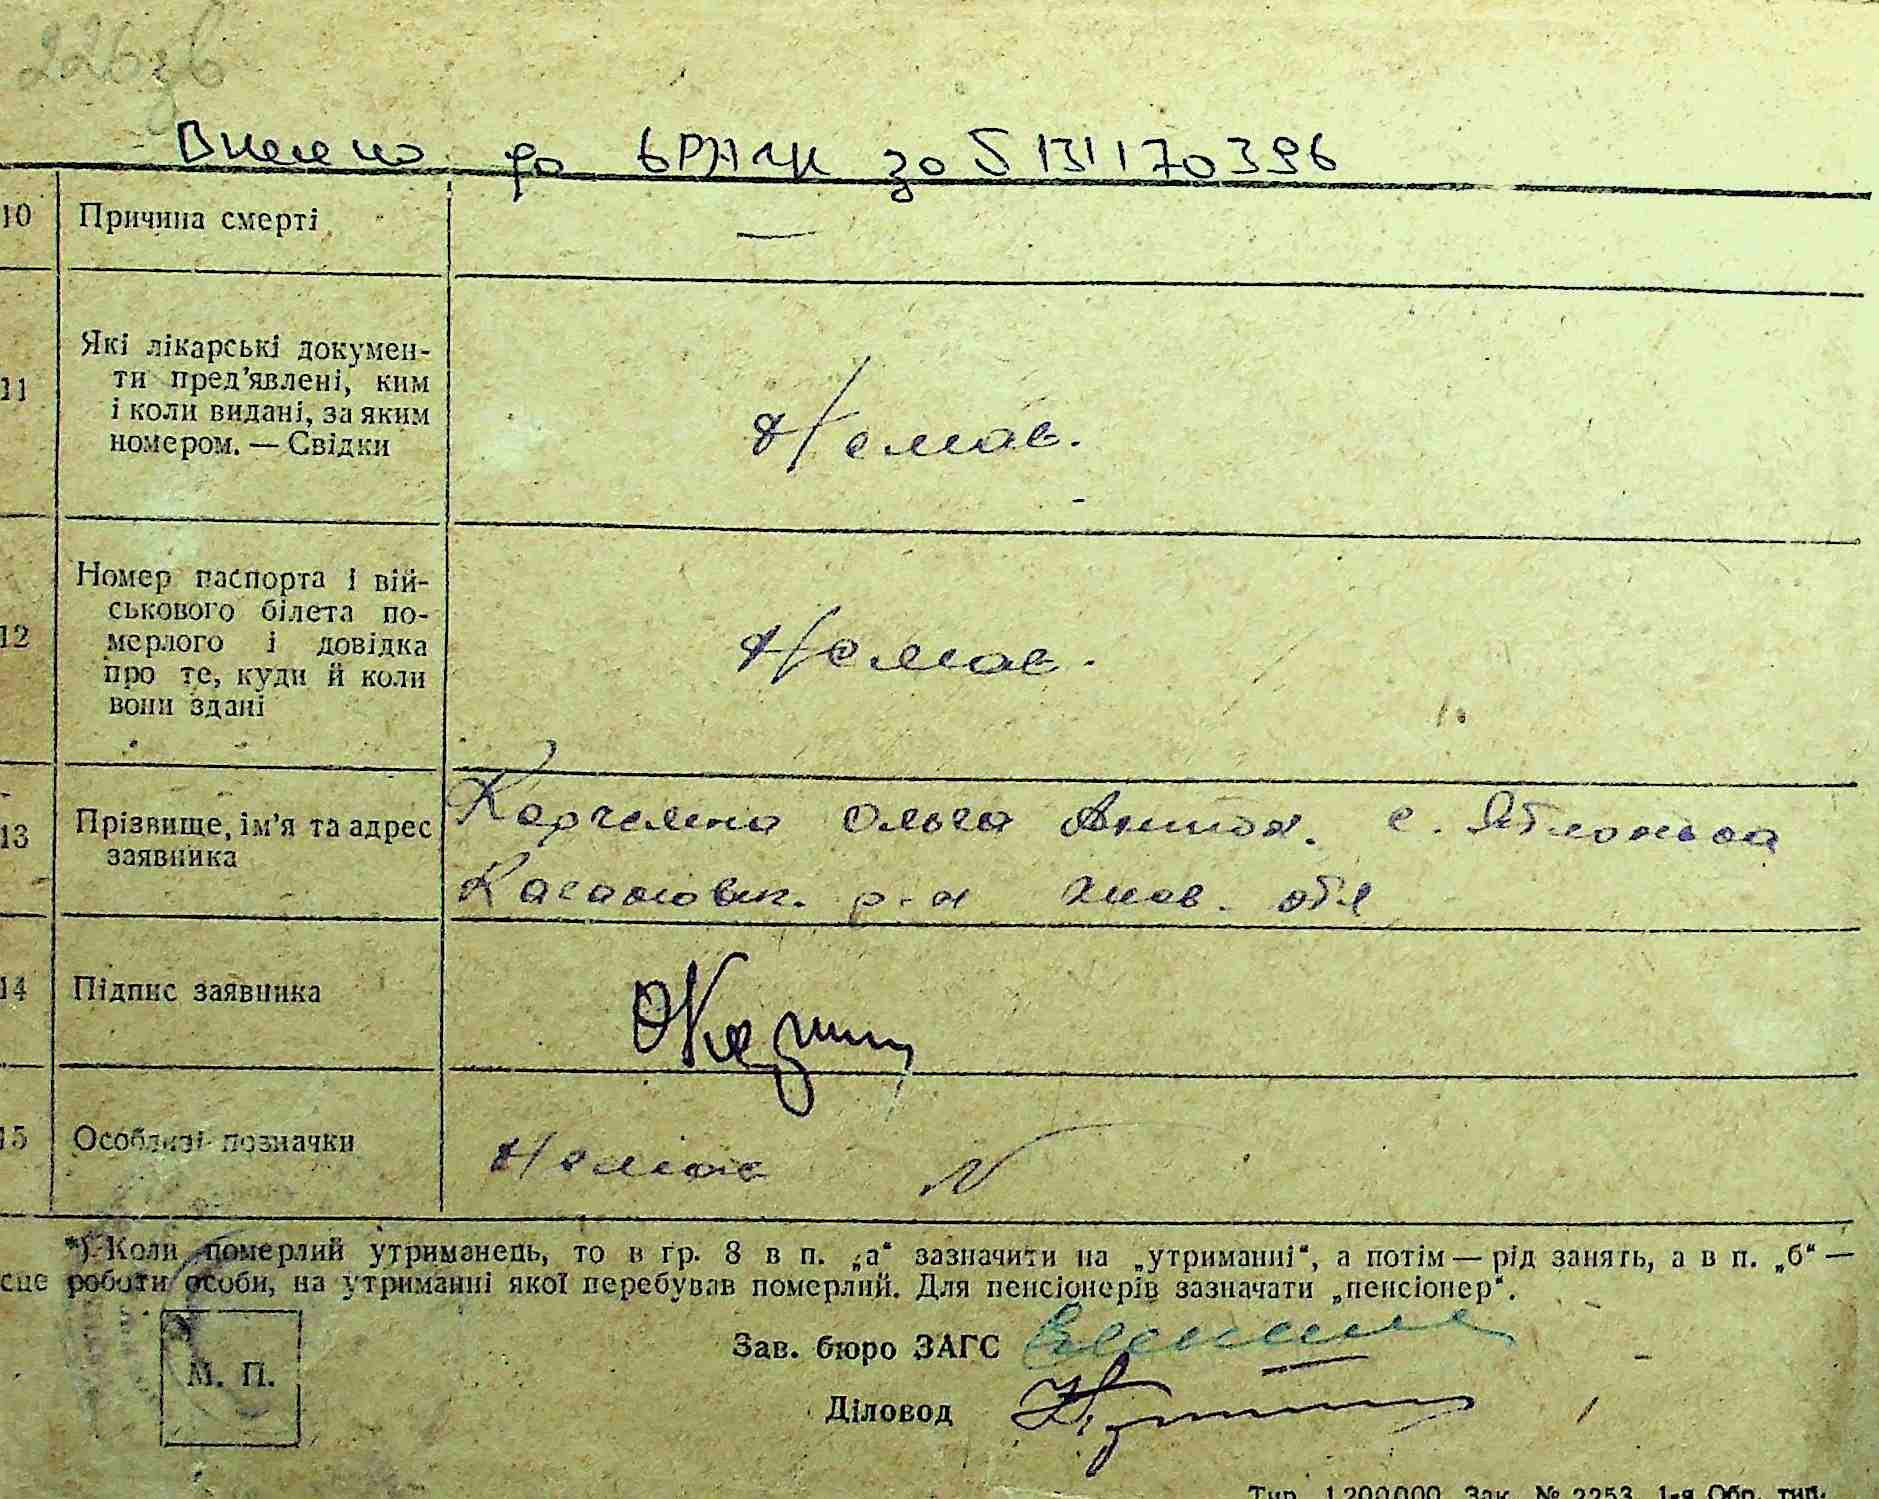 226зв
Внесено до ДРАЦС за 5131170396
10 Причина смерті —
11 Які лікарські докумен-
ти пред'явлені, ким
і коли видані, за яким
номером. — Свідки
Немає.
12 Номер паспорта і вій-
ськового білета по-
мерлого і довідка
про те, куди й коли
вони здані
Немає.
13 Прізвище, ім'я та адрес
заявника
Ольга с.
р-н обл
14 Підпис заявника
15 Особливі позначки Немає
*) Коли померлий утриманець, то в гр. 8 в п. „а“ зазначити на „утриманні“, а потім — рід занять, а в п. „б“ —
сце роботи особи, на утриманні якої перебував померлий. Для пенсіонерів зазначати „пенсіонер“.
М. П.
Зав. бюро ЗАГС
Діловод
Тир. 1.200.000. Зак. № 2253. 1-я Обр. тип.